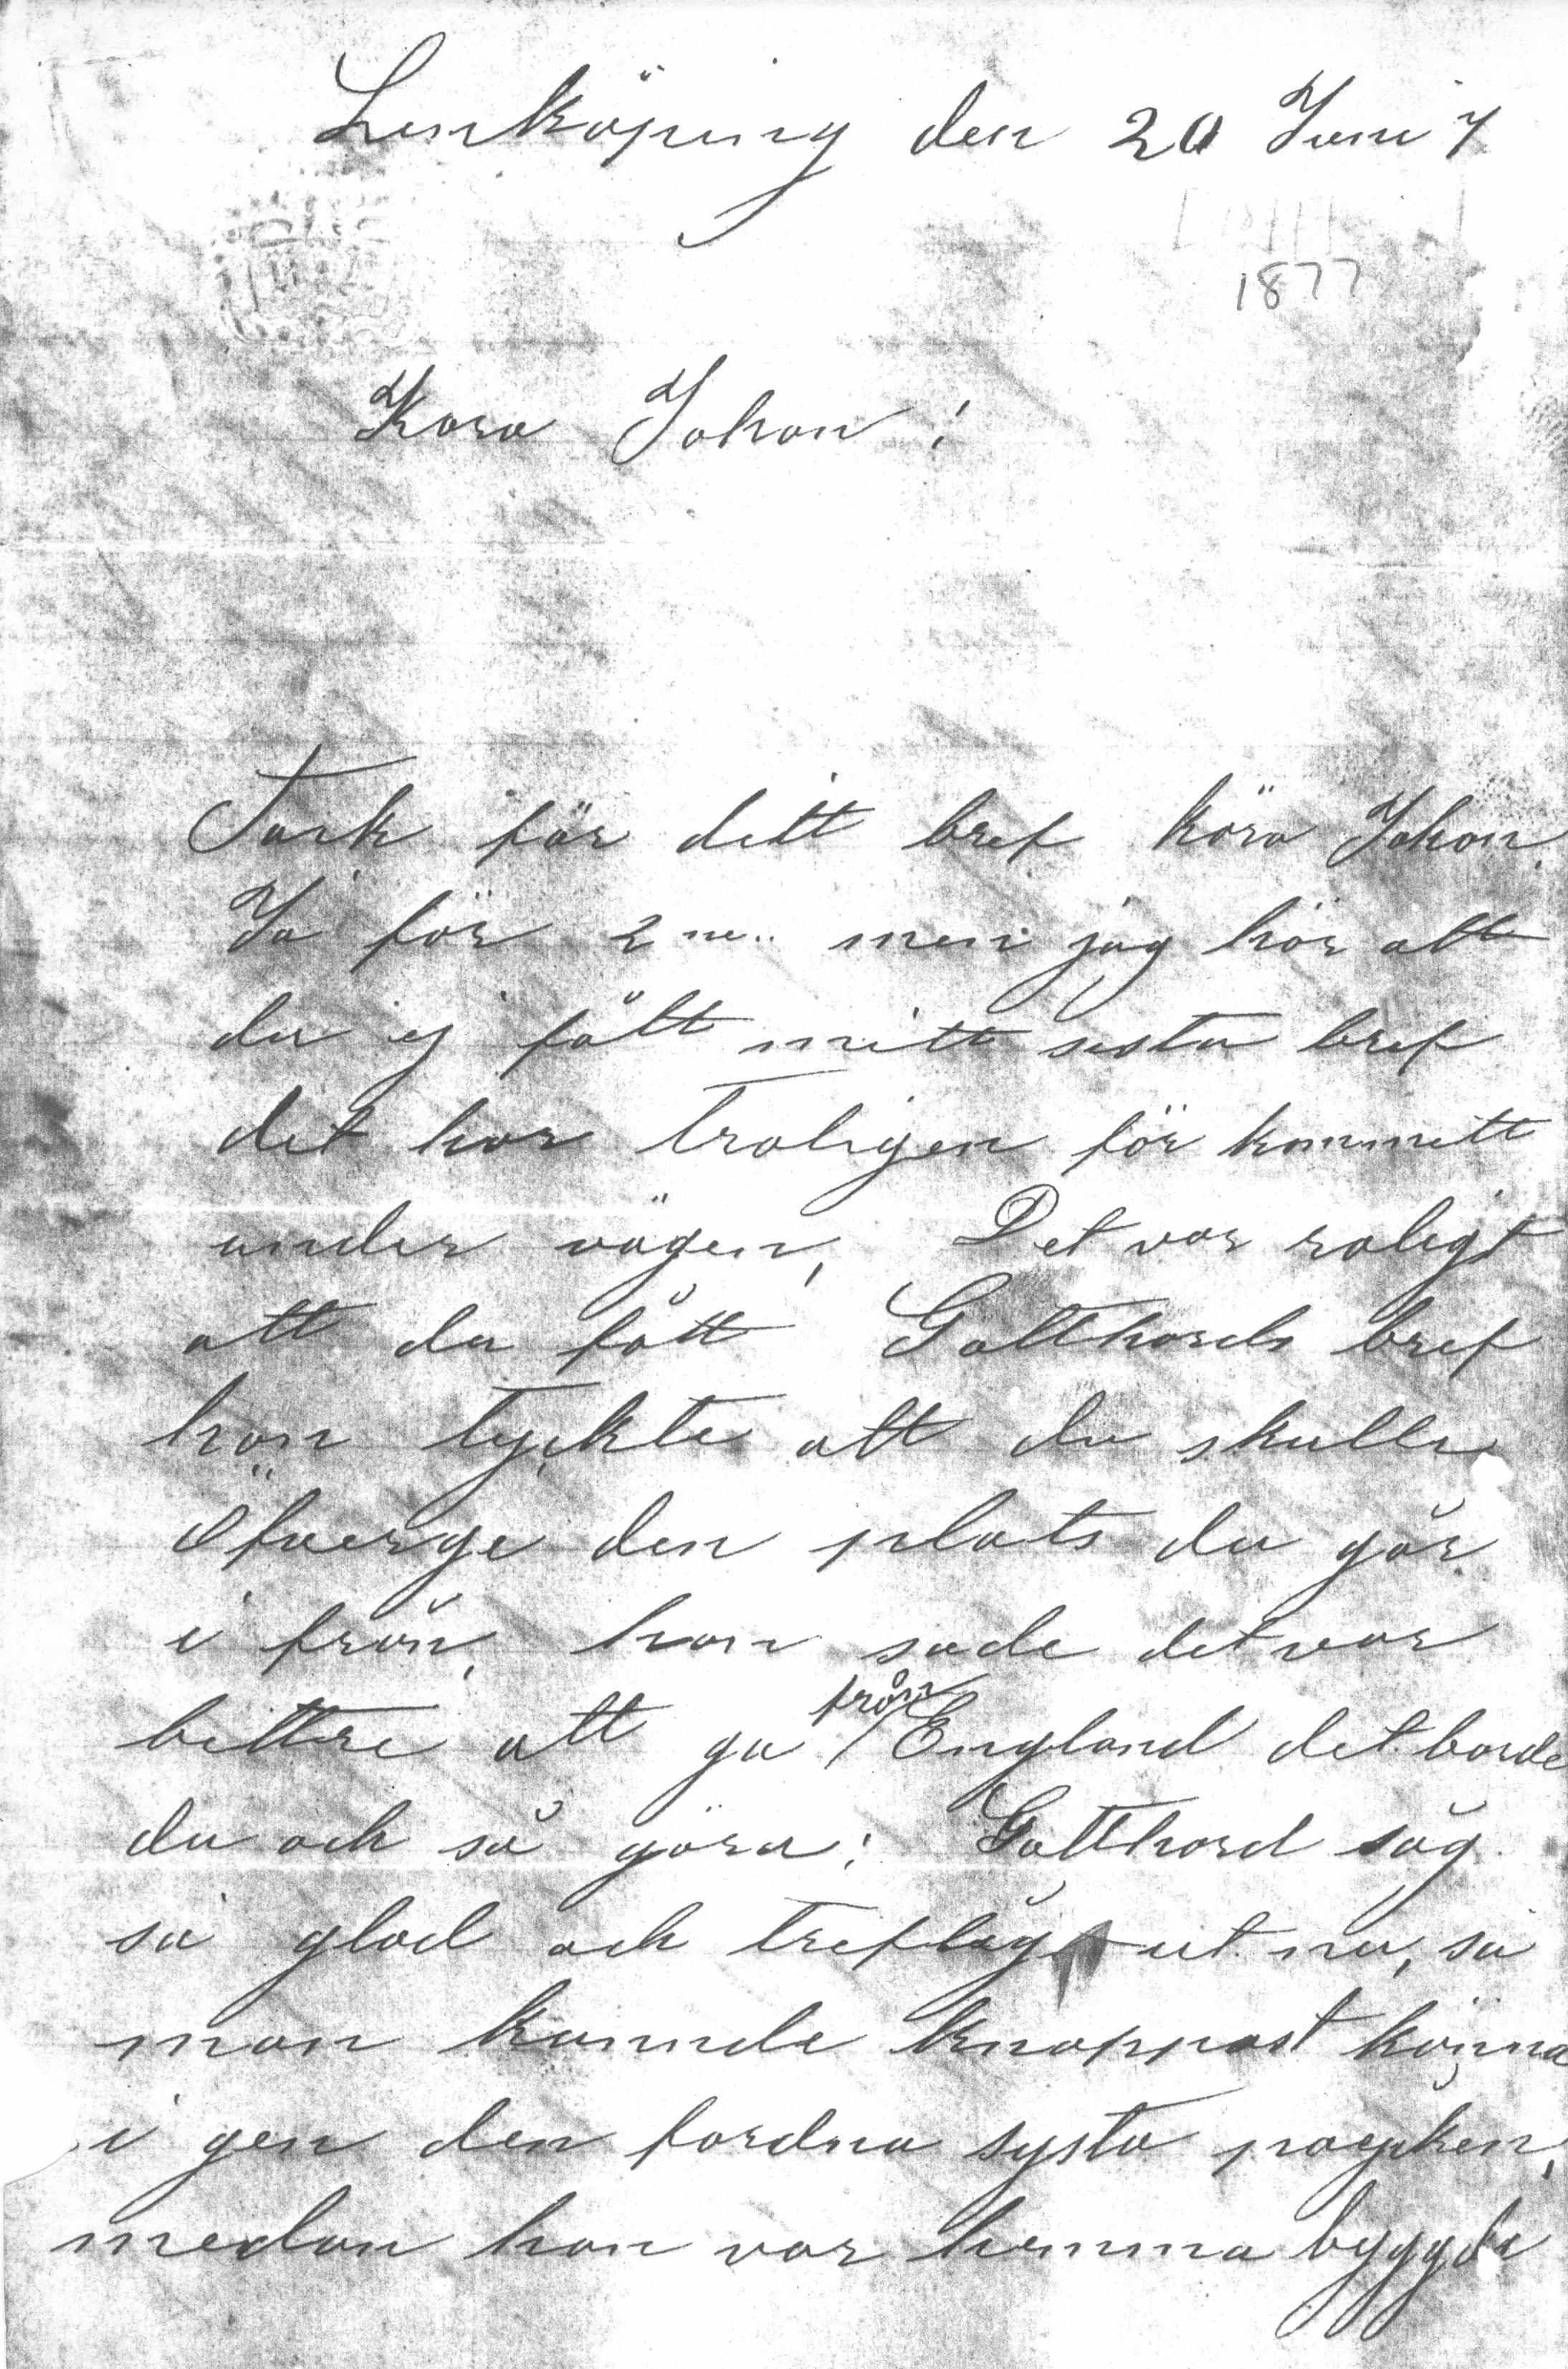 Linköping den 20 Juni 7
1877
Kära Johan!
Tack för ditt bref kära Johan
Ja för 2ne.. men jag hör att
du ej fått mitt sista bref
det har troligen för kommitt
under vägen, Det var roligt
att du fått Gotthards bref
han tyckte att du skulle
öfverge den plats du går
i från, han sade det var
bättre att gå från England det borde
du och så göra: Gotthard såg
så glad och treflig ut nu, så
man kunnde knappast känna
i gen den fordna tysta poejken,
medan han var hemma byggde